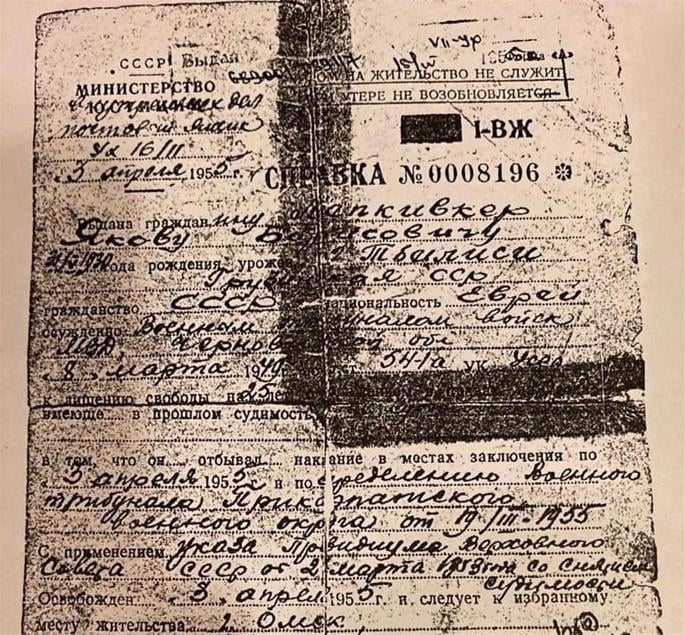 СССР Выдан
VII-ур
МИНИСТЕРСТВО
НА ЖИТЕЛЬСТВО НЕ СЛУЖИТ
внутренних дел
УТЕРЕ НЕ ВОЗОБНОВЛЯЕТСЯ
почтовый ящик
I-ВЖ
Ух 16/11
3 апреля 1955 г.
СПРАВКА № 0008196
Выдана гражданину
Якову Борисовичу
1930 года рождения, уроже Тбилиси
Грузинская ССР
гражданство СССР национальность Еврей
осужденно Военным трибуналом войск
МВД, Черновицкой обл
8 марта 1949 54-1а УК УССР
к лишению свободы на 25 ле
имеюще в прошлом судимость
в том, что он отбывал наказание в местах заключения по
3 апреля 1955 и по определению Военного
трибунала Прикарпатского
военного округа от 19/III-1955
С применением указа Президиума Верховного
Совета СССР от 2 марта 1953 года со снятием
судимости
Освобожден 3 апрел 1955 г. и следует к избранному
месту жительства г. Омск